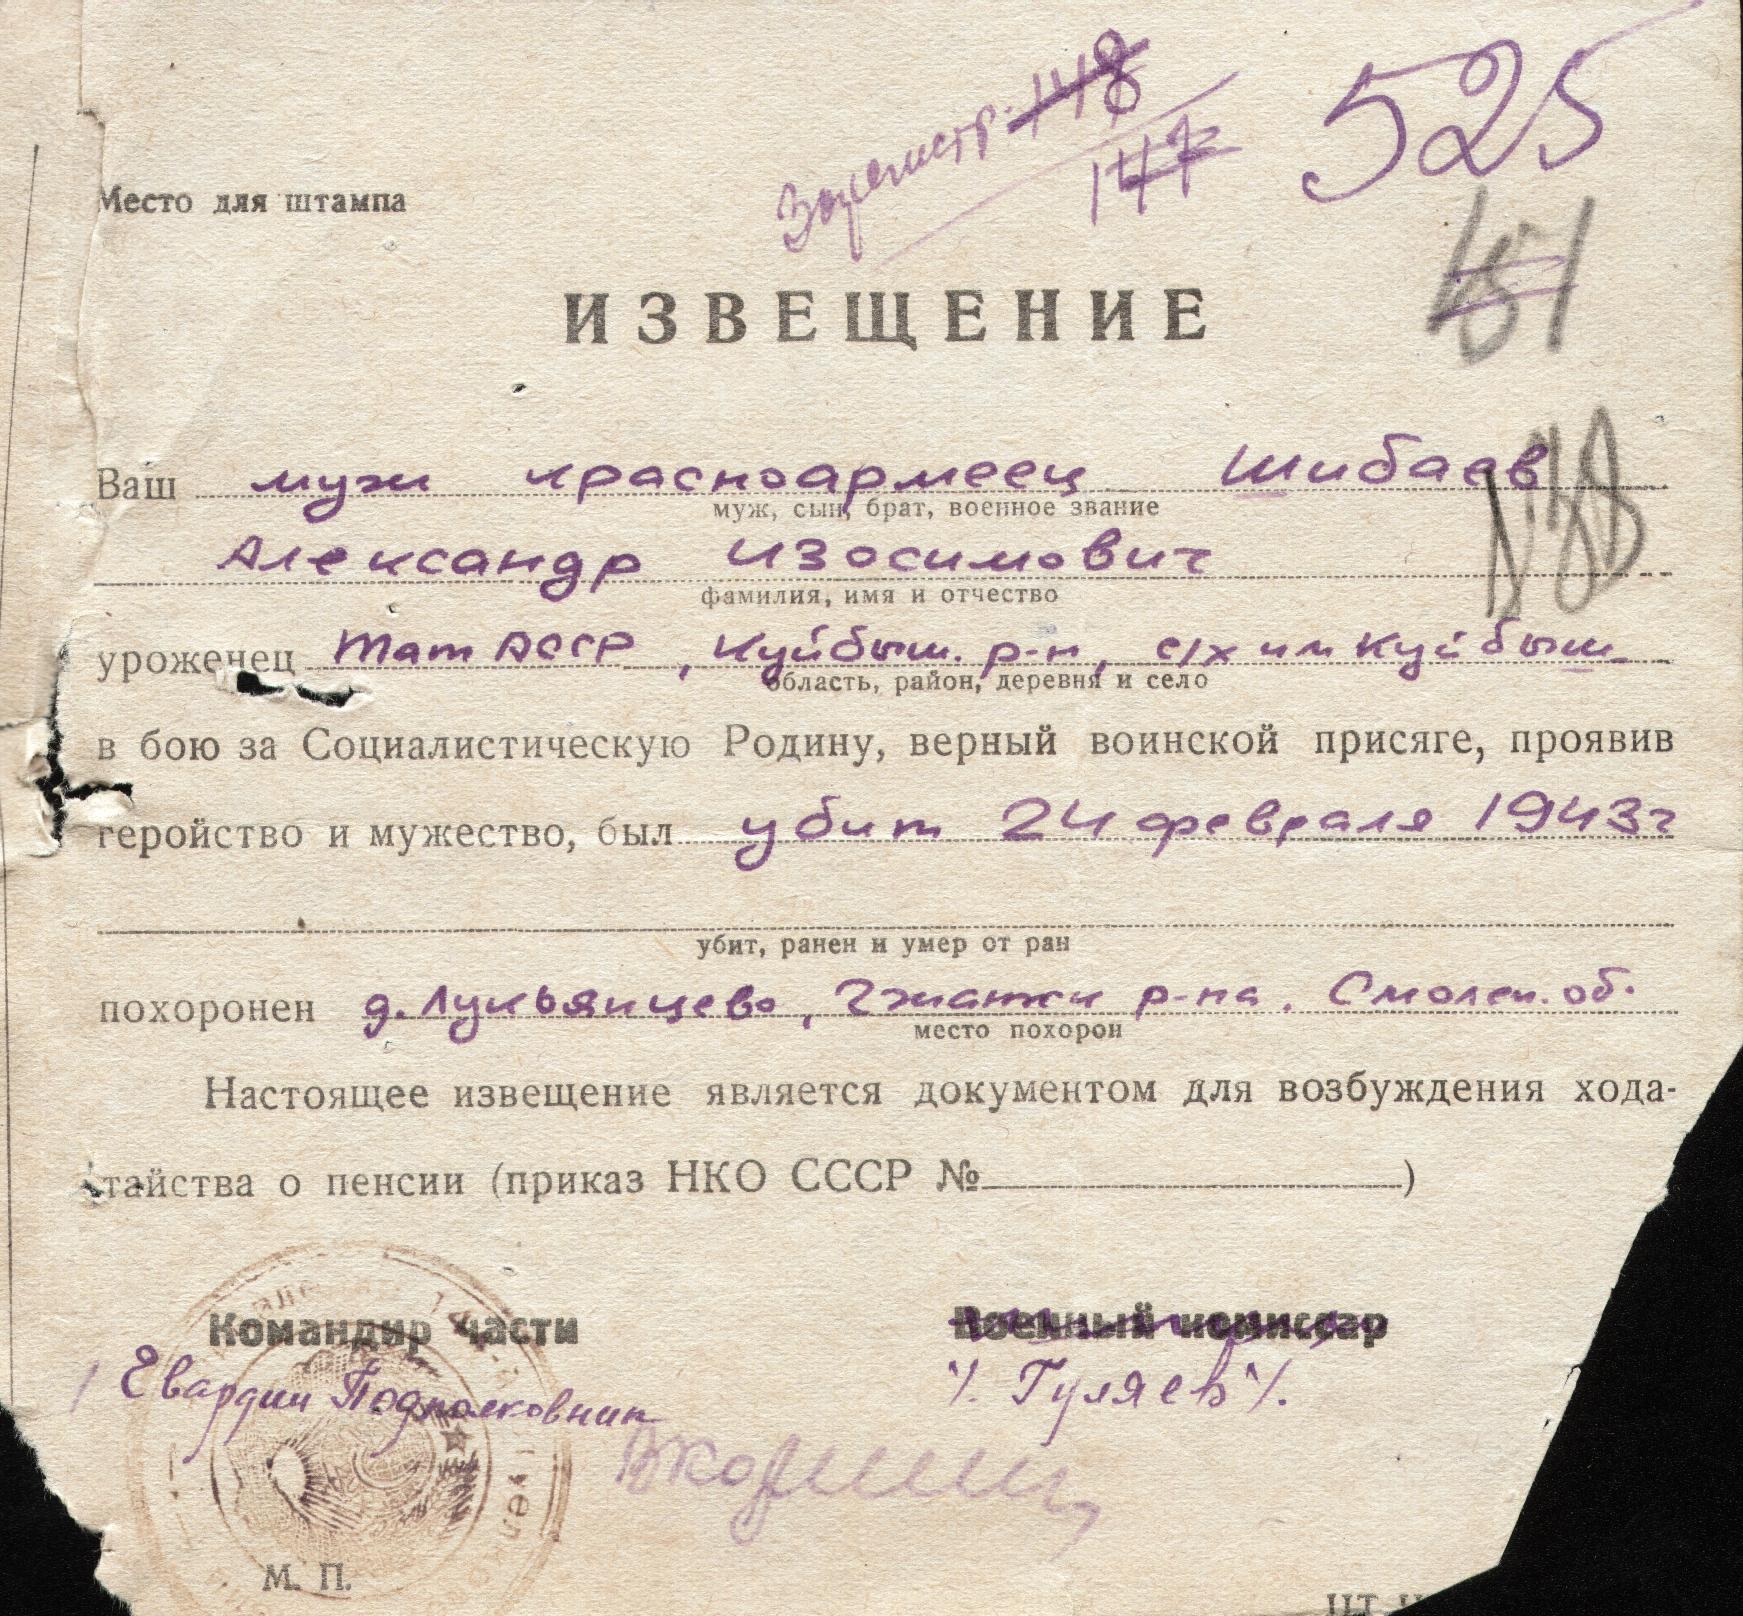 525
Зарегистр. 148
147
Место для штампа
ИЗВЕЩЕНИЕ
Ваш муж красноармеец Шибаев
муж, сын, брат, военное звание
Александр Изосимович
фамилия, имя и отчество
уроженец Тат АССР, Куйбыш. р-н, с/х им Куйбыш
область, район, деревня и село
в бою за Социалистическую Родину, верный воинской присяге, проявив
геройство и мужество, был убит 24 февраля 1943г
убит, ранен и умер от ран
похоронен д. Лукьянцево, Гжатск р-на. Смолен. об.
место похорон
Настоящее извещение является документом для возбуждения хода-
тайства о пенсии (приказ НКО СССР № )
Командир части Военный комиссар
Подполковник /. Гуляев /.
М. П.